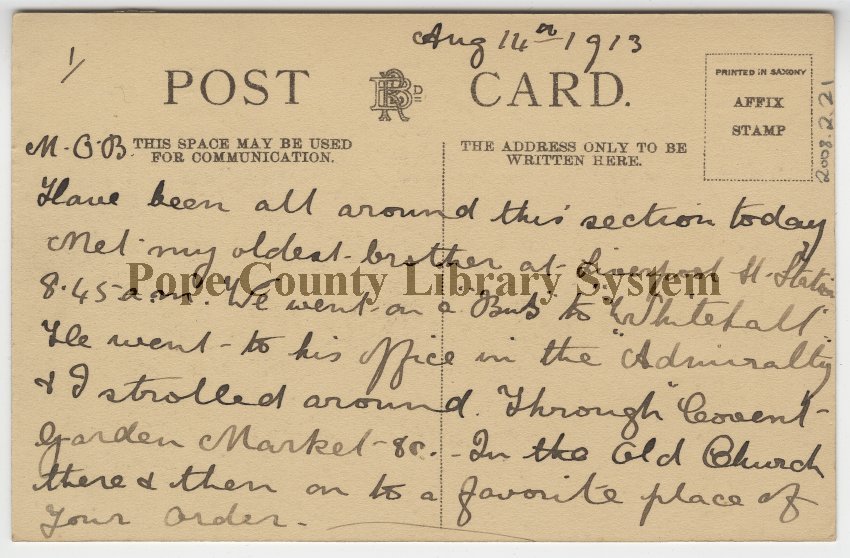 Aug 14th 1913
1/
POST CARD.
PRINTED IN SAXONY
AFFIX
STAMP
2008.2.21
M.O.B.
THIS SPACE MAY BE USED
FOR COMMUNICATION.
THE ADDRESS ONLY TO BE
WRITTEN HERE.
Have been all around this section today
Met my oldest brother at Liverpool St. Station
Pope County Library System
8.45 a.m. We went on a Bus to "Whitehall"
He went to his office in the "Admiralty"
& I strolled around. Through "Covent
Garden Market &c. - In the Old Church
there & then on to a favorite place of
Your Order.